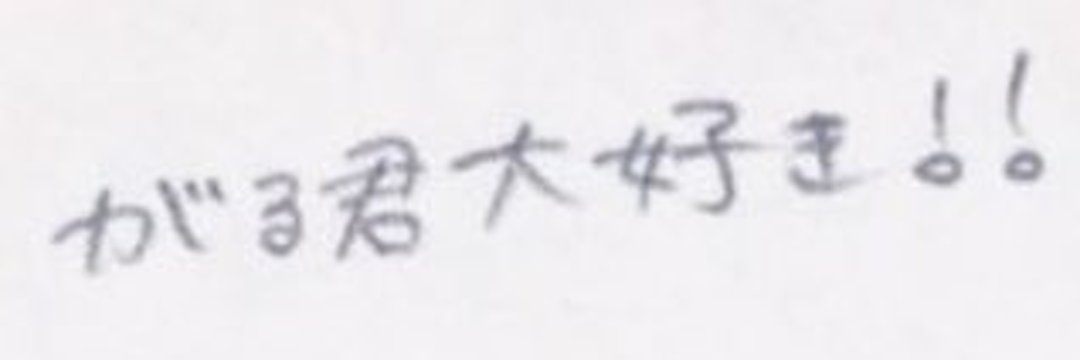 がる君大好き!!